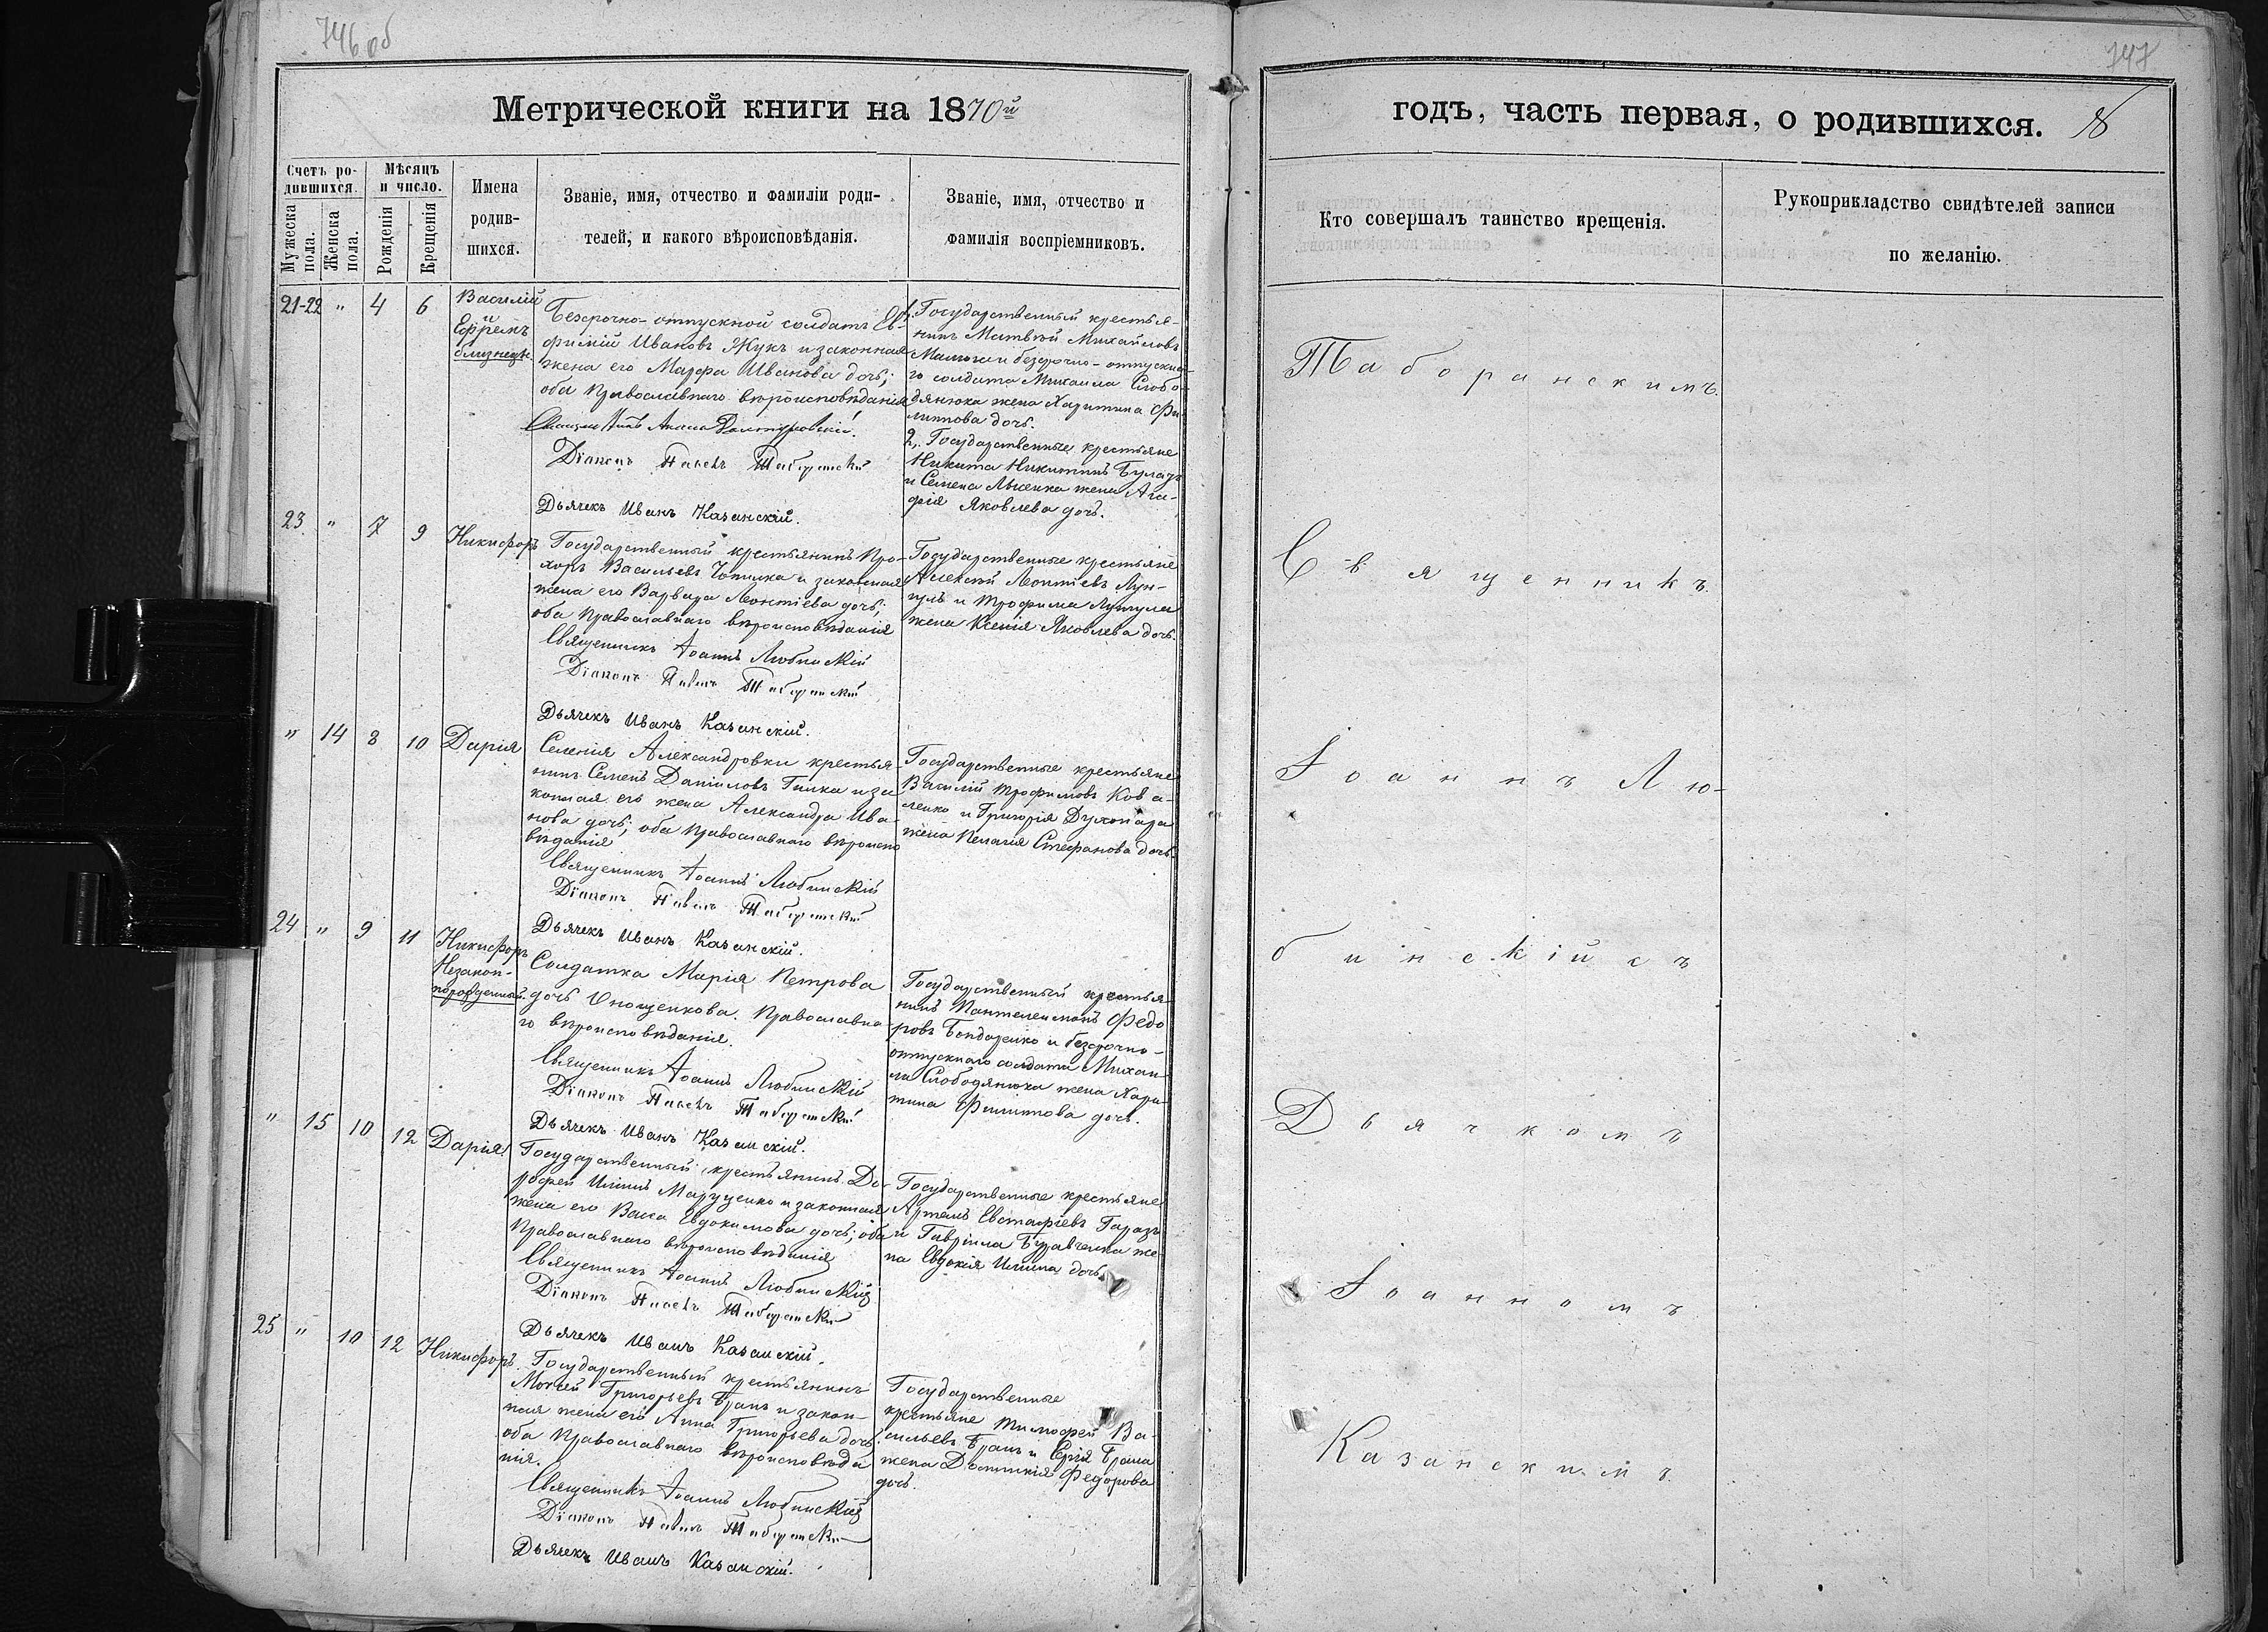 746 об
Метрической книги на 1870й
Счетъ ро-
дившихся.
Мужеска
пола.
Женска
пола.
Мѣсяцъ
и число.
Рожденія
Крещенія
Имена
родив-
шихся.
Званіе, имя, отчество и фамиліи роди-
телей, и какого вѣроисповѣданія.
Званіе, имя, отчество и
фамилія воспріемниковъ.
21-22 " 4 6
Василій
и
Ефремъ
близнецы.
Безсрочно-отпускной солдатъ Ев-
фимій Ивановъ Жукъ и законная
жена его Марфа Иванова дочь;
оба Православнаго вѣроисповѣданія
Діаконъ Павелъ Таборанскій
Дьячекъ Иванъ Казанскій.
1. Государственный крестья-
нинъ Матвѣй Михайловъ
и безсрочно-отпускна-
го солдата Михаила Слобо-
дянюка жена Харитина Фи-
липпова дочь.
2. Государственные крестьяне
Никита Никитинъ
и Семена жена Ага-
фія Яковлева дочь.
23 " 7 9
Никифоръ
Государственный крестьянинъ Про-
хоръ Васильевъ и законная
жена его Варвара Леонтіева дочь;
оба Православнаго вѣроисповѣданія
Священникъ Іоаннъ Любинскій
Діаконъ Павелъ Таборанскій
Дьячекъ Иванъ Казанскій.
Государственные крестьяне
Алексѣй Леонтіевъ
и Трофима
жена Ксенія Яковлева дочь.
" 14 8 10
Дарія
Селенія Александровки крестья-
нинъ Семенъ Даніиловъ Галка и за-
конная его жена Александра Ива-
нова дочь; оба Православнаго вѣроиспо
вѣданія
Священникъ Іоаннъ Любинскій
Діаконъ Павелъ Таборанскій
Дьячекъ Иванъ Казанскій.
Государственные крестьяне
Василій Трофимовъ Кова-
ленко и Григорія
жена Пелагія Стефанова дочь.
24 " 9 11
Никифоръ
Незакон-
норожденный.
Солдатка Марія Петрова
дочь Онощенкова. Православна-
го вѣроисповѣданія.
Священникъ Іоаннъ Любинскій
Діаконъ Павелъ Таборанскій
Дьячекъ Иванъ Казанскій.
Государственный крестья-
нинъ Пантелеимонъ Федо
ровъ Бондаренко и безсрочно-
отпускнаго солдата Михаи-
ла Слободянюка жена Хари-
тина Филиппова дочь.
" 15 10 12
Дарія
Государственный крестьянинъ До-
рофей Ильинъ Маруценко и законная
жена его Васса Евдокимова дочь; оба
Православнаго вѣроисповѣданія
Священникъ Іоаннъ Любинскій
Діаконъ Павелъ Таборанскій
Дьячекъ Иванъ Казанскій.
Государственные крестьяне
Артемъ Евстафіевъ Гаразъ
и Гавріила Буравченка же-
на Евдокія Ильина дочь.
25 " 10 12
Никифоръ
Государственный крестьянинъ
Моисей Григорьевъ Брашъ и закон-
ная жена его Анна Григорьева дочь
оба Православнаго вѣроисповѣда
нія.
Священникъ Іоаннъ Любинскій
Діаконъ Павелъ Таборанскій
Дьячекъ Иванъ Казанскій.
Государственные
крестьяне Тимофей Ва-
сильевъ Брашъ и Сергія Браша
жена Домникія Федорова
дочь.
747
годъ, часть первая, о родившихся.
Кто совершалъ таинство крещенія.
Рукоприкладство свидѣтелей записи
по желанію.
Таборанскимъ.
Священникъ
Іоаннъ Лю-
бинскій съ
Дьячкомъ
Іоанномъ
Казанскимъ